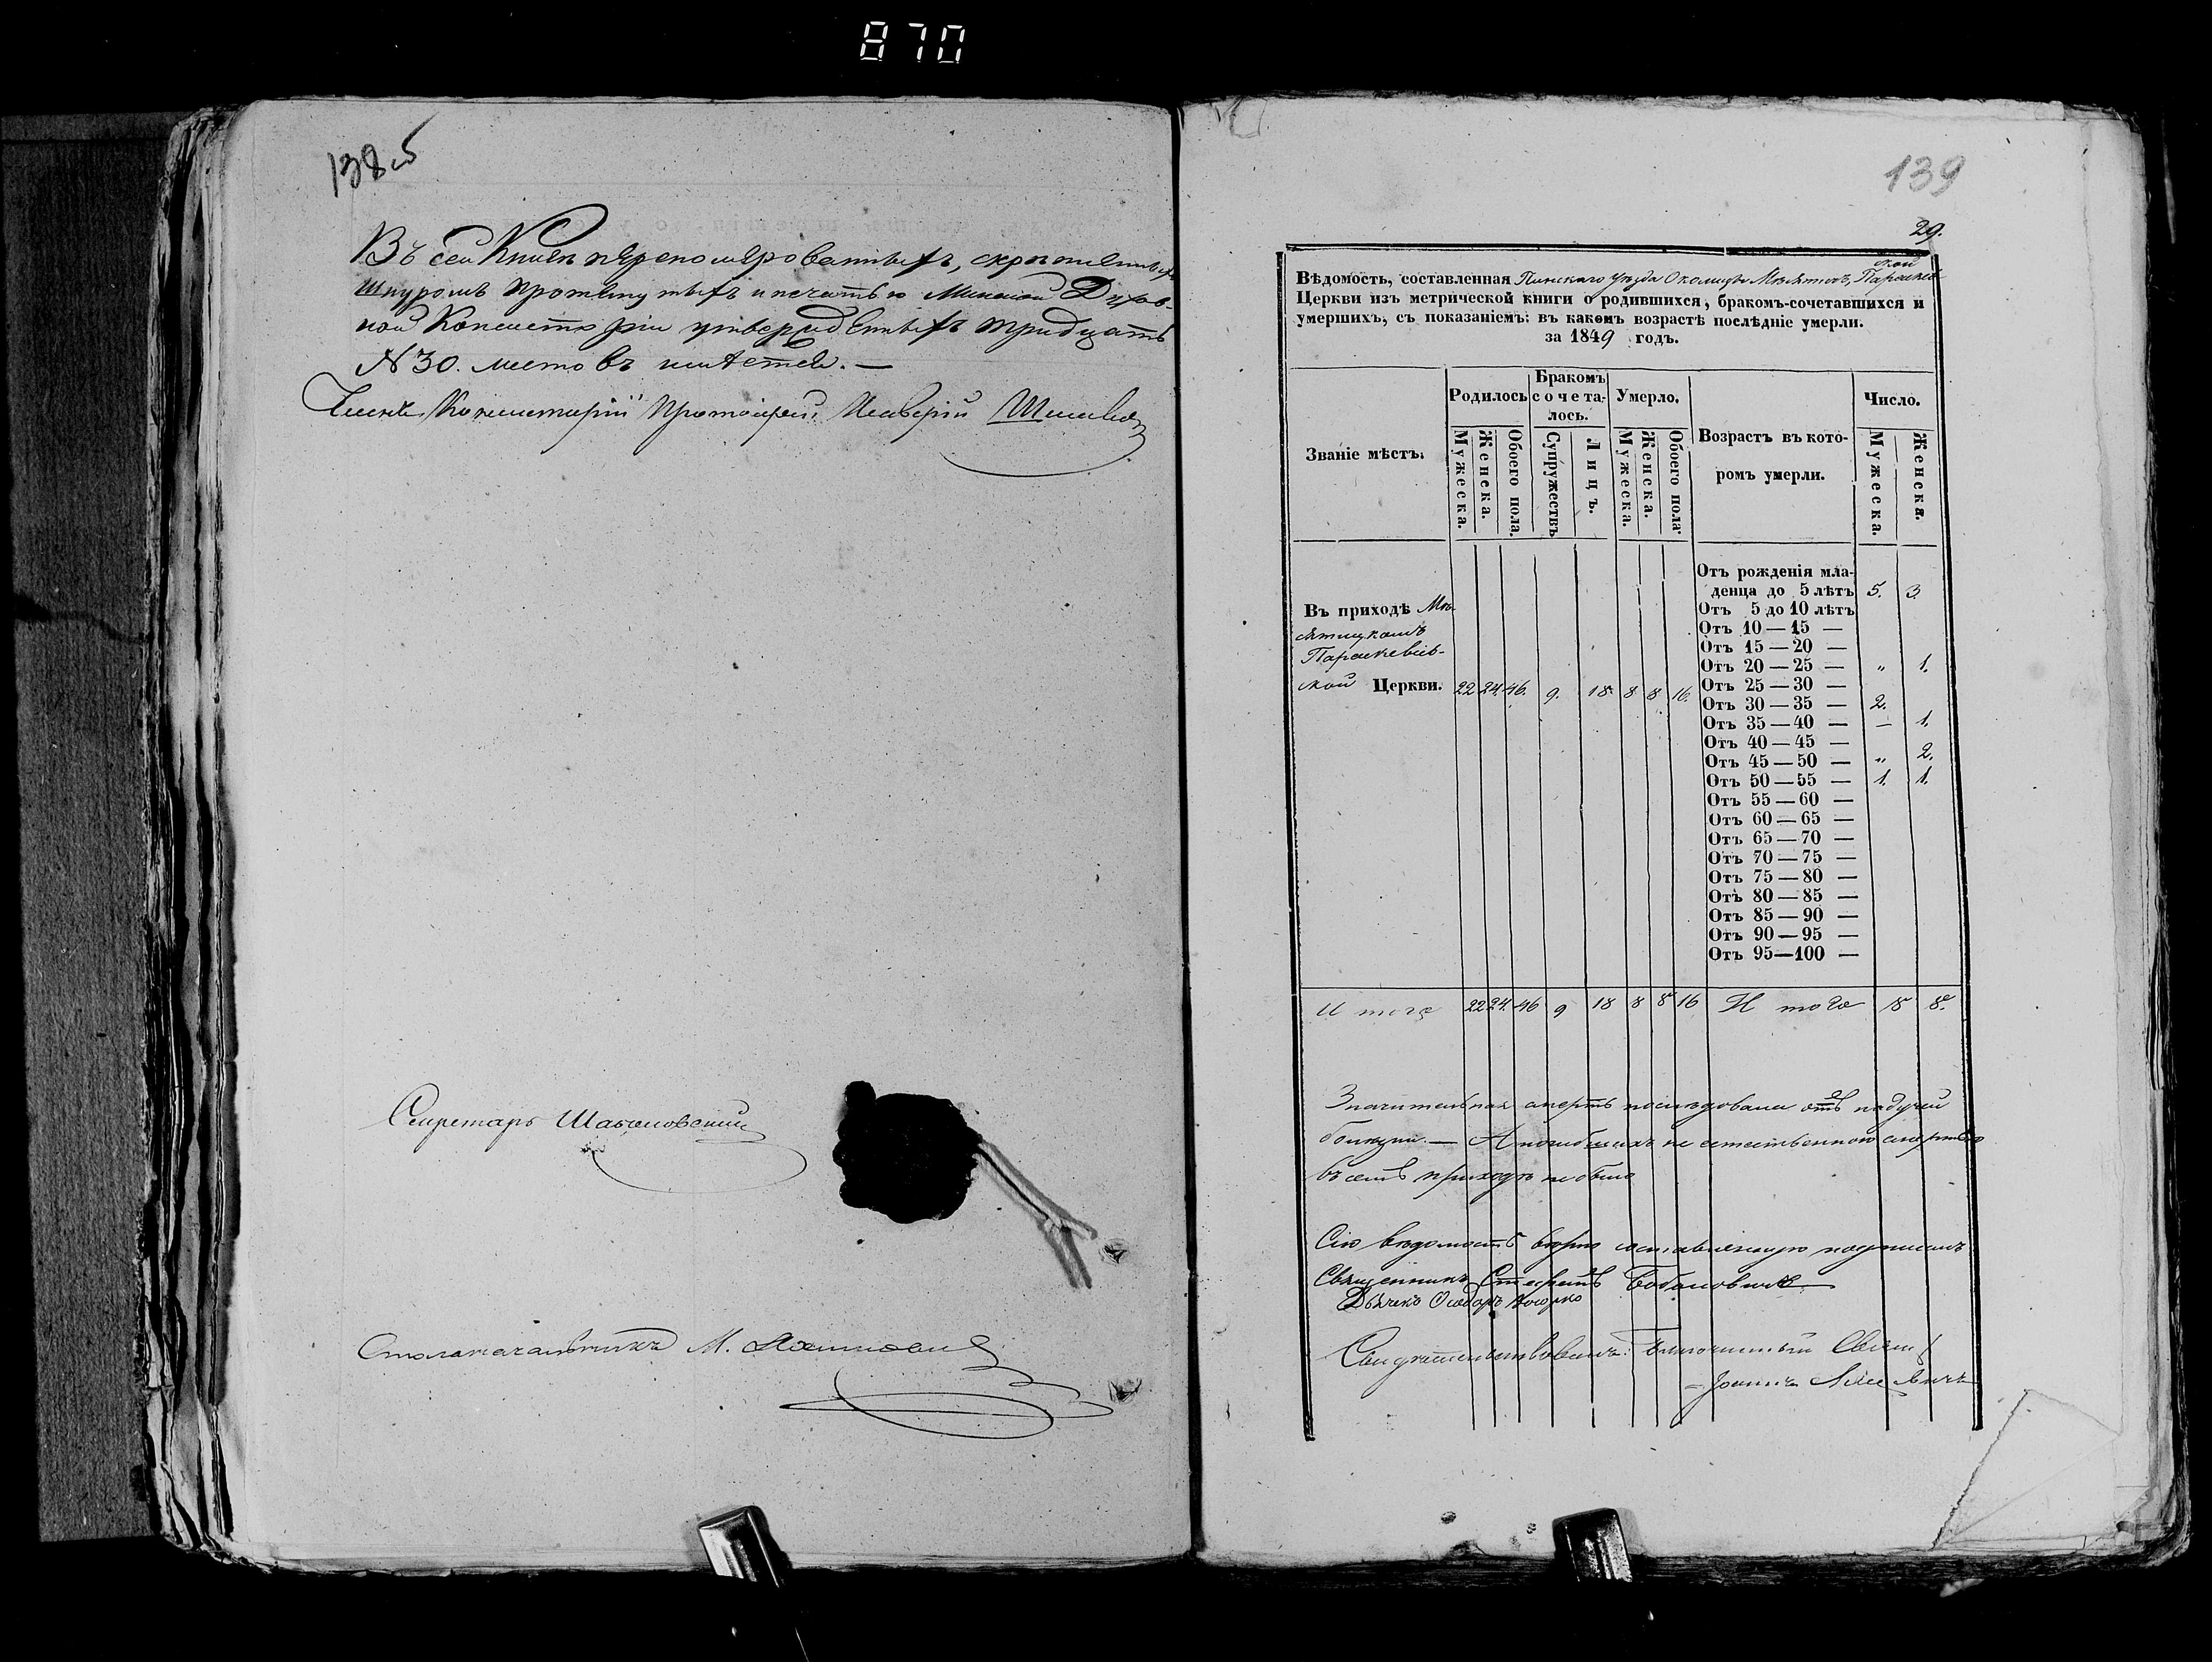 870
138об
Въ сей Книгѣ перенумерованныхъ, скрѣпленныхъ
Шнуромъ протянутыхъ и печатью Минской Духов-
ной Консисторіи утвержденныхъ тридцать
N 30. листовъ имѣется. —
Членъ Консисторіи Протоіерей
Секретарь
Столоначальникъ М.
139
29.
Вѣдомость, составленная Пинскаго уѣзда Околицы Параскев
ской
Церкви изъ метрической книги о родившихся, бракомъ-сочетавшихся и
умершихъ, съ показаніемъ: въ какомъ возрастѣ послѣдніе умерли.
за 1849 годъ.
Званіе мѣстъ.
Родилось
Бракомъ
сочета-
лось.
Умерло.
Возрастъ въ кото-
ромъ умерли.
Число.
Мужеска.
Женска.
Обоего пола.
Супружествъ
Лицъ.
Мужеска.
Женска.
Обоего пола.
Мужеска.
Женска.
Въ приходѣ
Параскевіев-
ской Церкви. 22 24 46. 9. 18 8 8 16.
Отъ рожденія мла-
денца до 5 лѣтъ 5. 3.
Отъ 5 до 10 лѣтъ
Отъ 10 — 15 —
Отъ 15 — 20 —
Отъ 20 — 25 — „ 1.
Отъ 25 — 30 —
Отъ 30 — 35 — 2.
Отъ 35 — 40 — — 1.
Отъ 40 — 45 —
Отъ 45 — 50 — „ 2.
Отъ 50 — 55 — 1. 1.
Отъ 55 — 60 —
Отъ 60 — 65 —
Отъ 65 — 70 —
Отъ 70 — 75 —
Отъ 75 — 80 —
Отъ 80 — 85 —
Отъ 85 — 90 —
Отъ 90 — 95 —
Отъ 95—100 —
Итого 22 24. 46 9 18 8 8 16 Итого 8 8.
Значительная смерть послѣдовала отъ падучей
болѣзни. — А погибшихъ не естественною смертью
въ семъ приходѣ не было
Сію вѣдомость вѣрно составленную подписалъ
Священникъ Стефанъ
Дьячекъ
Свидѣтельствовалъ: Благочинный Свящ
Іоаннъ